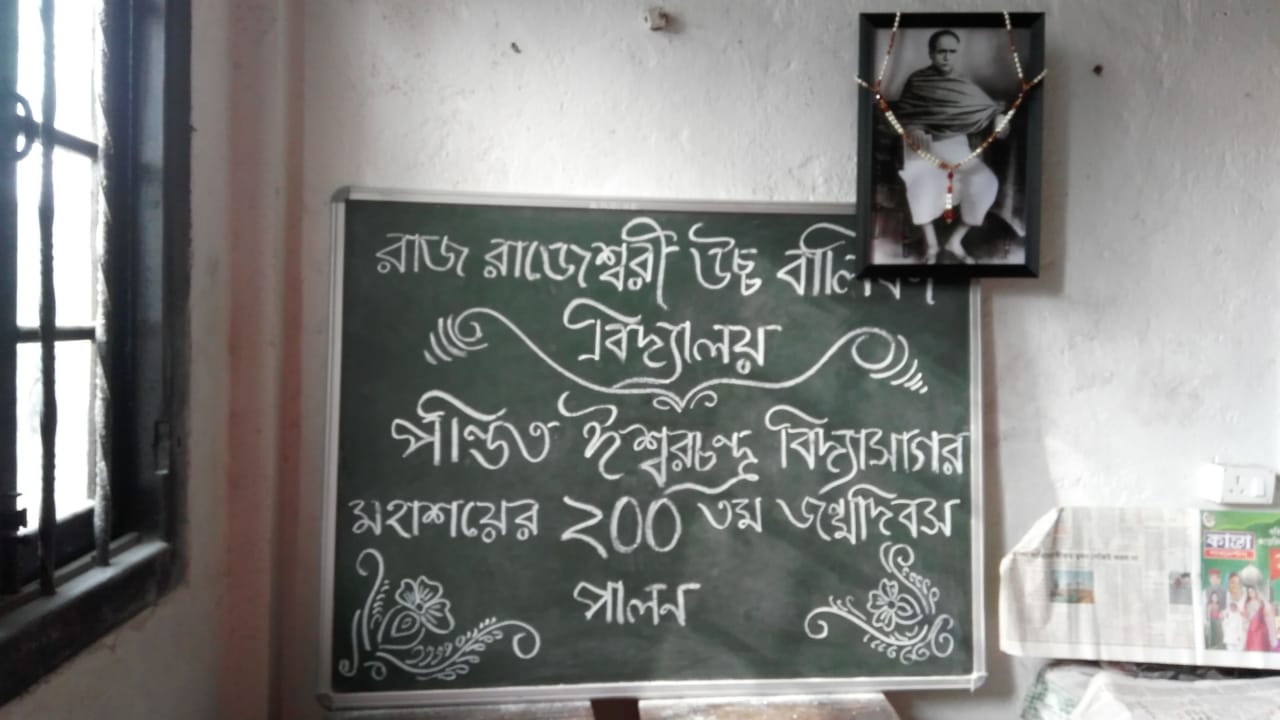 রাজ রাজেশ্বরী উচ্চ বালিকা
বিদ্যালয়
পন্ডিত ঈশ্বরচন্দ্র বিদ্যাসাগর
মহাশয়ের ২০০ তম জন্মদিবস
পালন